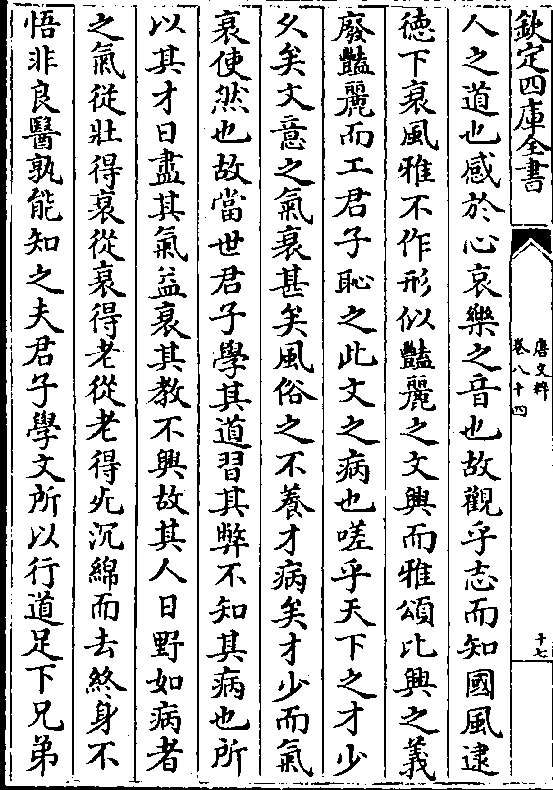 欽定四庫全書
唐文粹
卷八十四
十七
人之道也感於心哀樂之音也故觀乎志而知國風逮
徳下衰風雅不作形似豔麗之文興而雅頌比興之義
廢豔麗而工君子恥之此文之病也嗟乎天下之才少
乆矣文意之氣衰甚矣風俗之不養才病矣才少而氣
衰使然也故當世君子學其道習其弊不知其病也所
以其才日盡其氣益衰其教不興故其人日野如病者
之氣從壯得衰從衰得老從老得死沉綿而去終身不
悟非良醫孰能知之夫君子學文所以行道足下兄弟